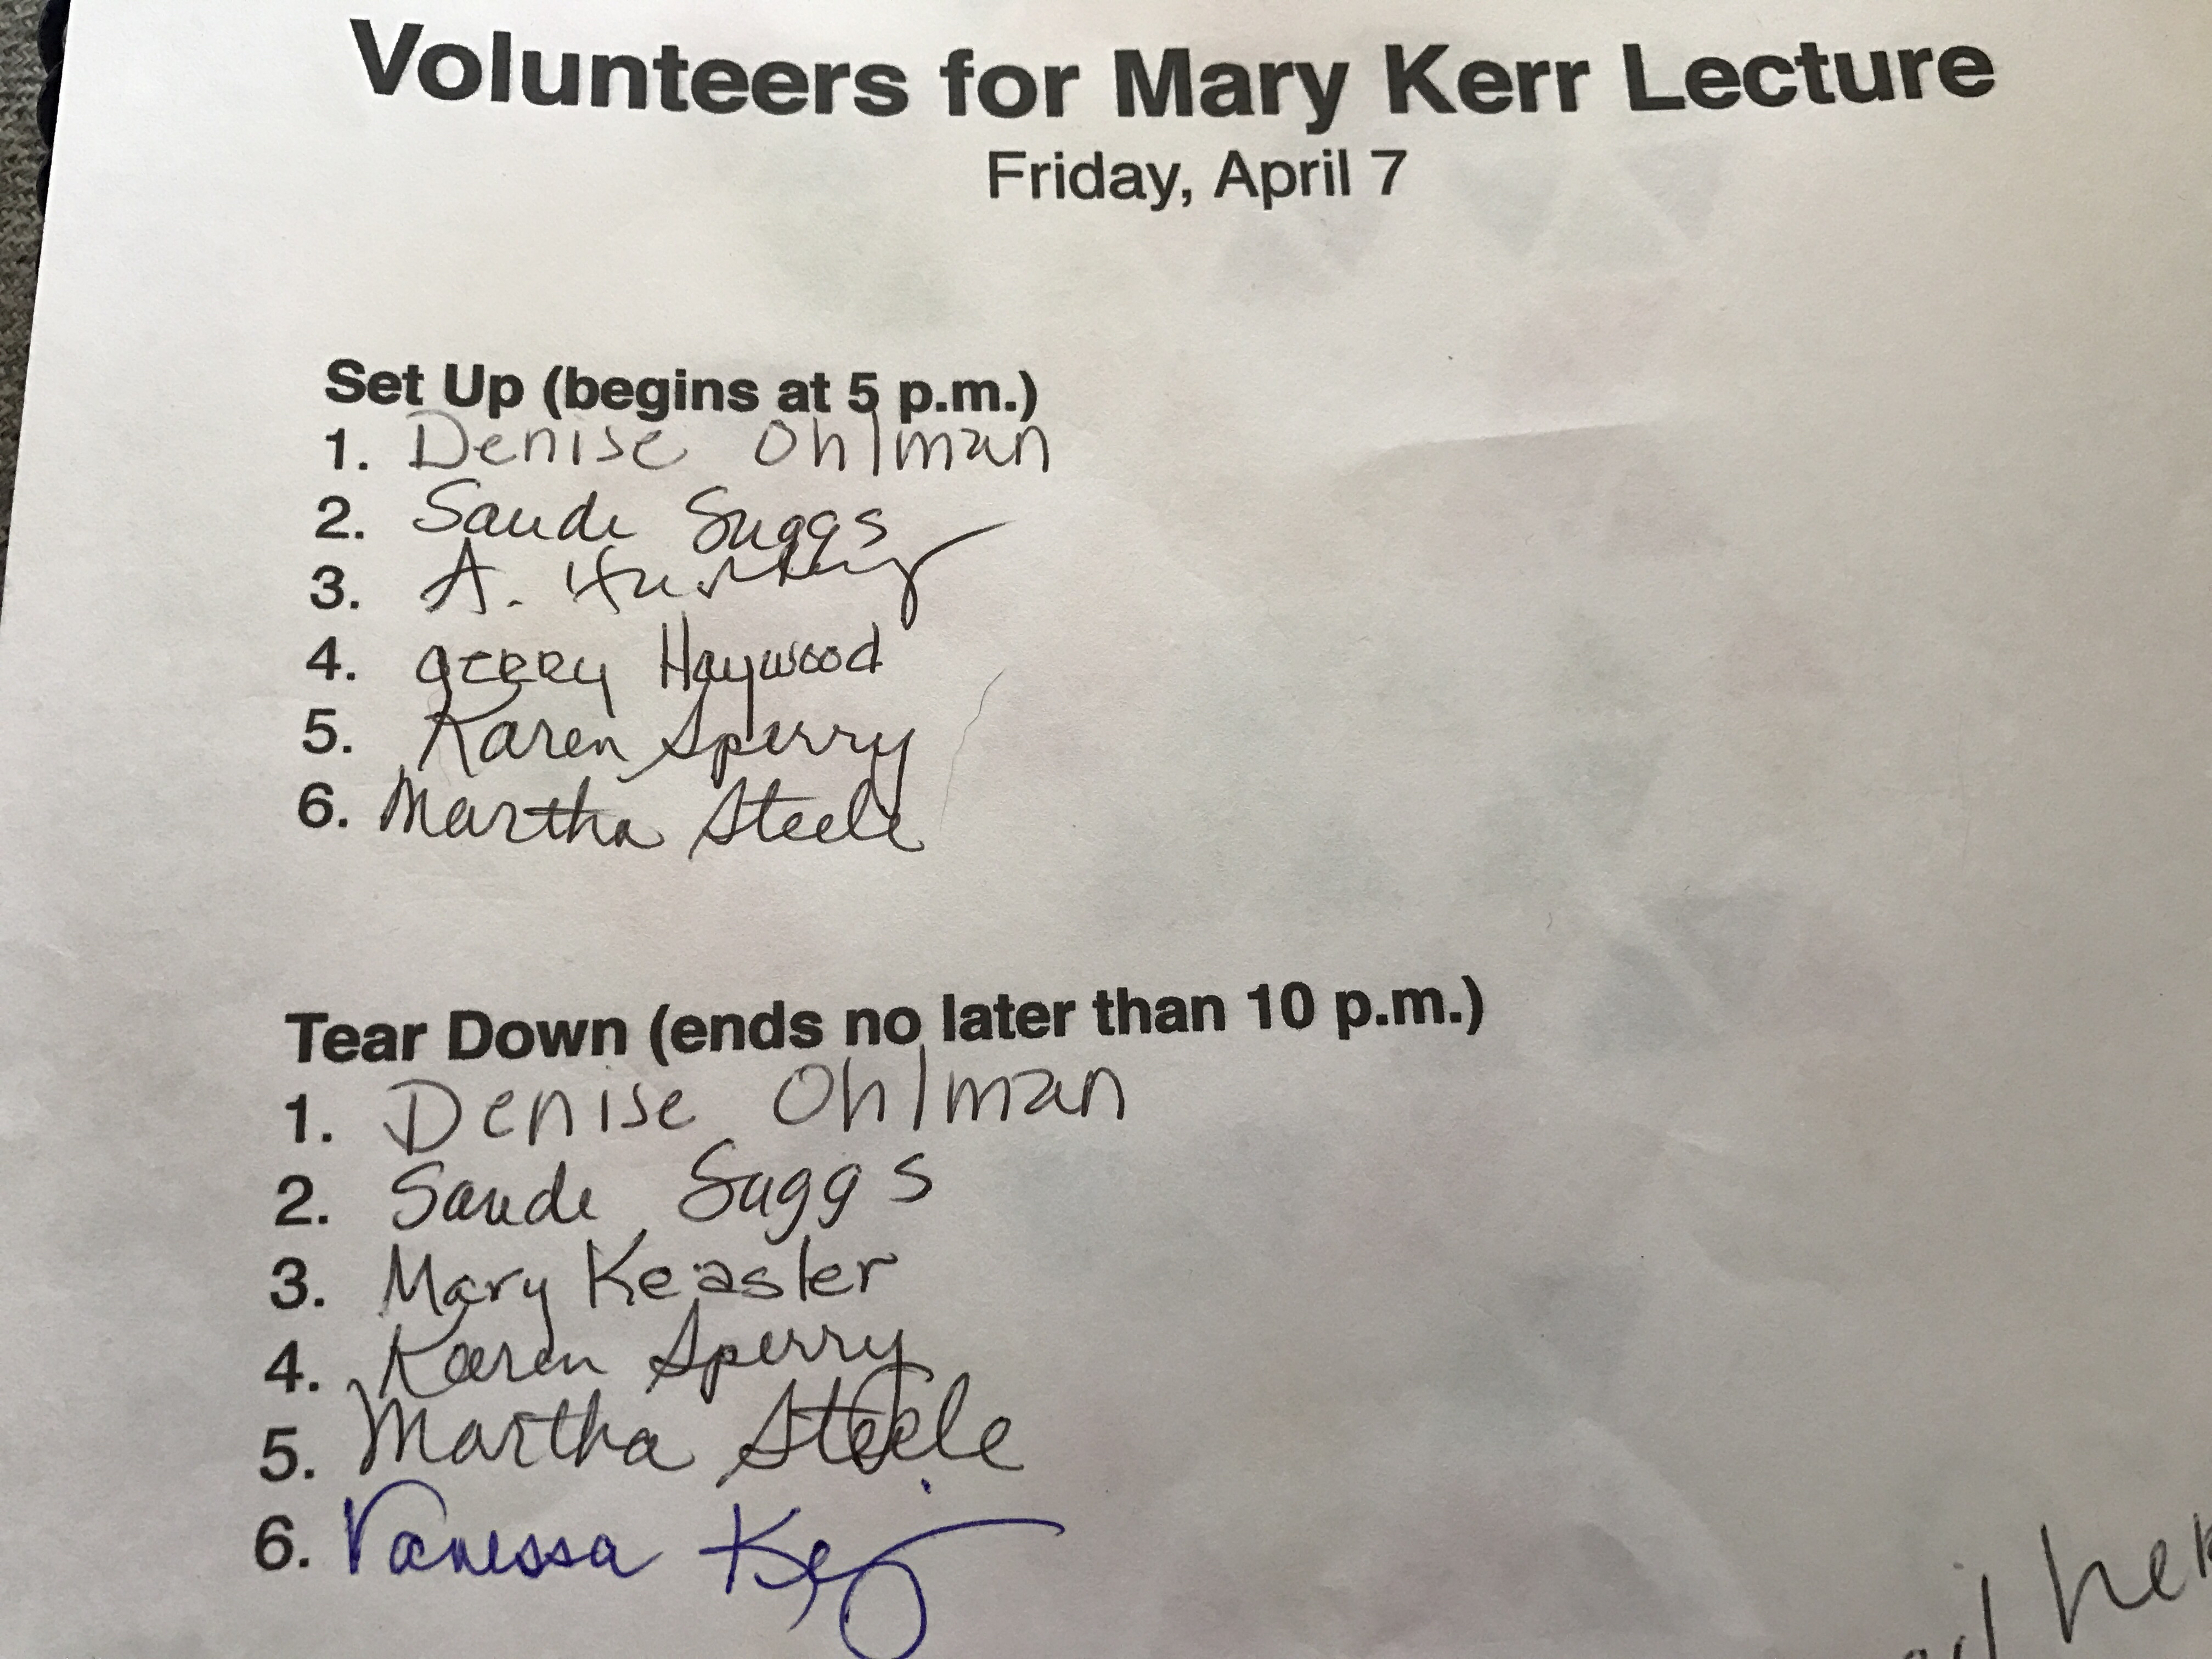 Volunteers for Mary Kerr Lecture
Friday, April 7
Set Up (begins at 5 p.m.)
1. Denise Ohlman
2. Sande Suggs
3. A.
4. Gerry Haywood
5. Karen Sperry
6. Martha Steele
Tear Down (ends no later than 10 p.m.)
1. Denise Ohlman
2. Sande Suggs
3. Mary Keasler
4. Karen Sperry
5. Martha Steele
6. Vanessa